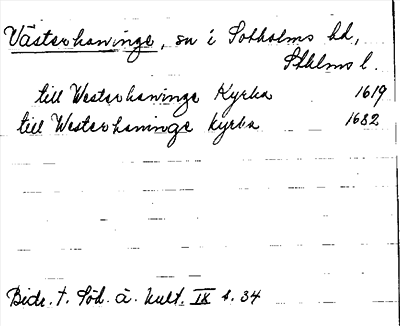 Västerhaninge, sn i Sotholms hd,
Sthlms l.
till Westerhaninge Kyrka 1619
till Westerhaninge kyrka 1682
Bidr. t. Söd. ä. kult. IX s. 34